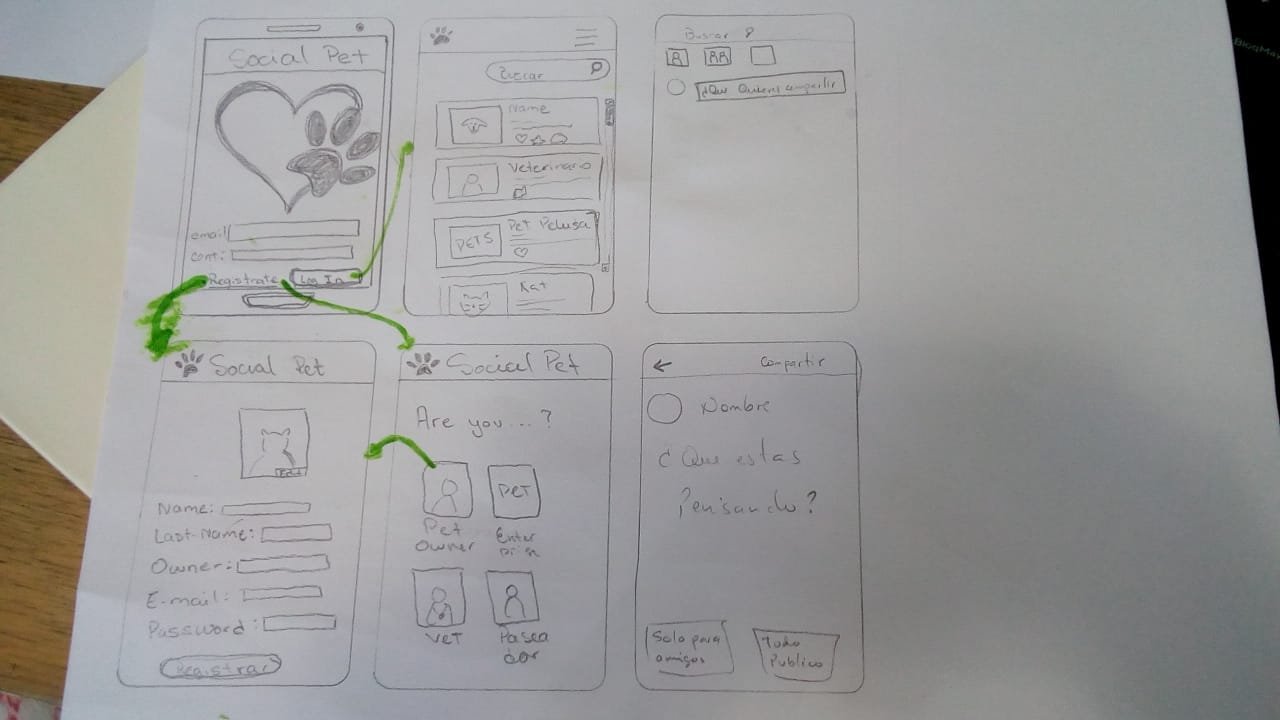 Social Pet
email
cont:
Registrate
Log In
Buscar
Name
Veterinario
PETS
Pet Pelusa
Kat
Buscar
¿Que Quieres compartir
Social Pet
Edit
Name:
Last-Name:
Owner:
E-mail:
Password:
Registrar
Social Pet
Are you...?
PET
Pet
Owner
Enter
prise
VET
Pasea
dor
Compartir
Nombre
¿Que estas
Pensando?
Solo para
amigos
Todo
Publico